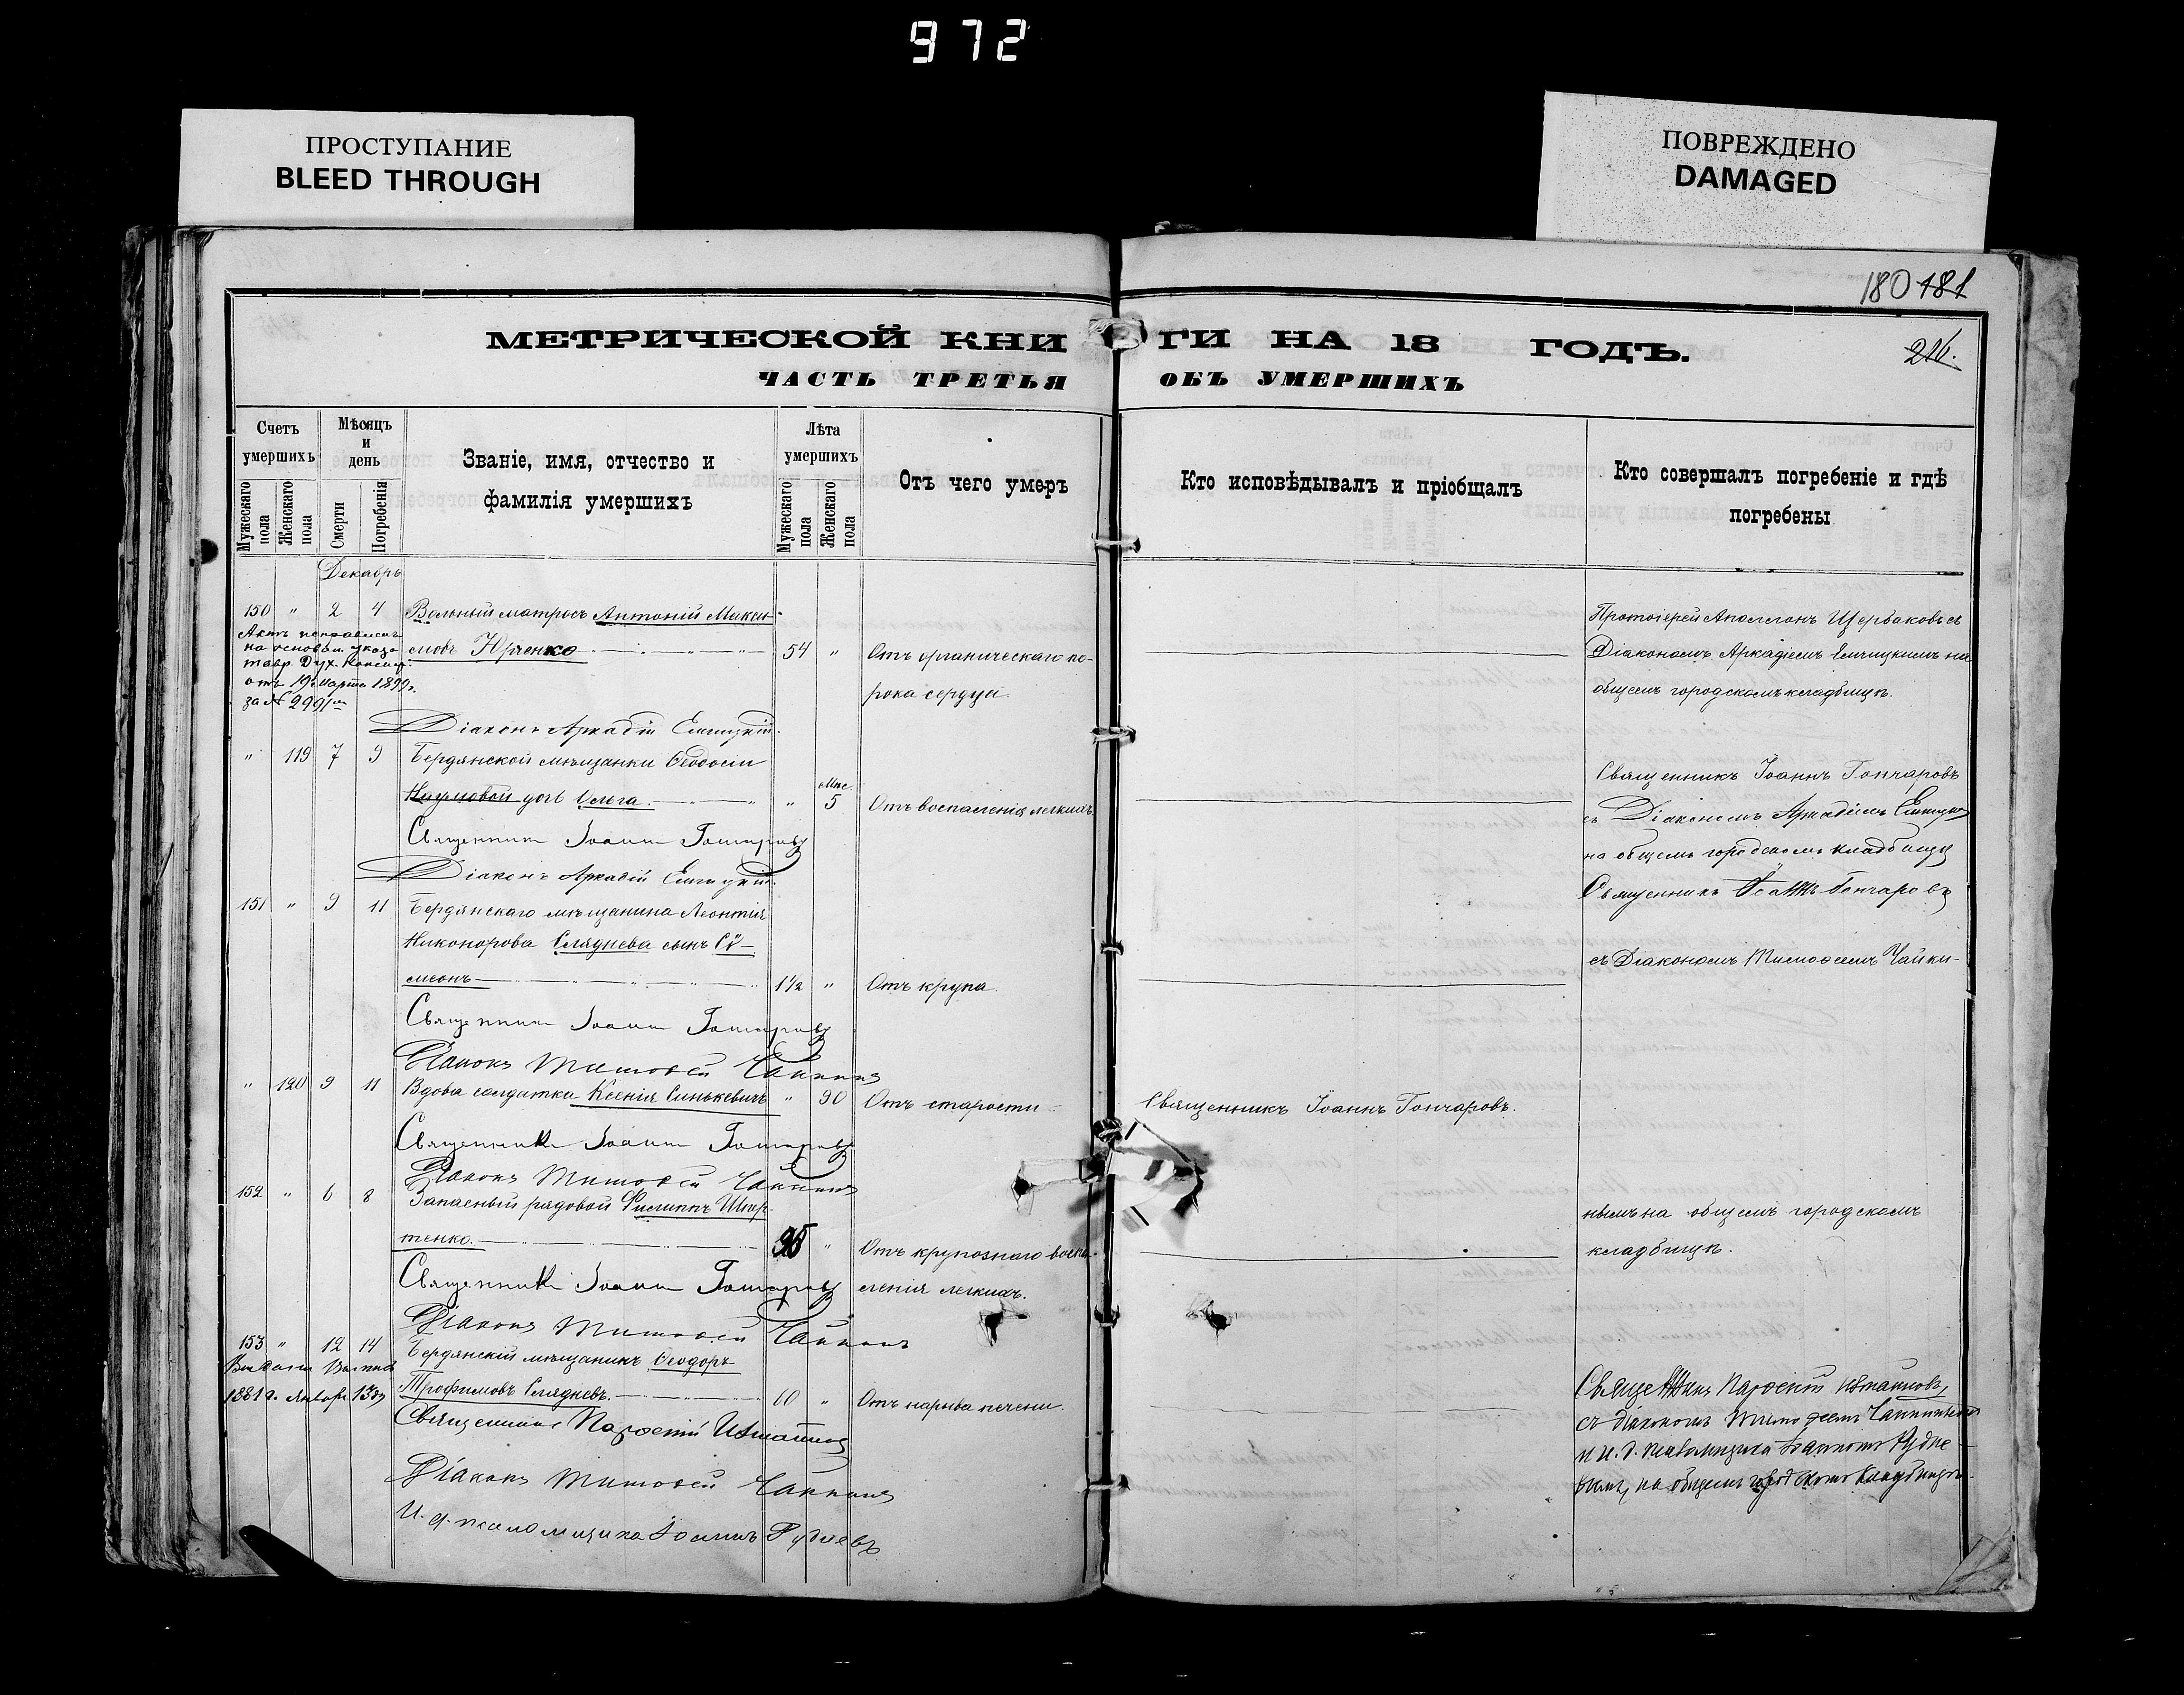 972
ПРОСТУПАНИЕ
BLEED THROUGH
ПОВРЕЖДЕНО
DAMAGED
180 181
216.
МЕТРИЧЕСКОЙ КНИГИ НА 18 ГОДЪ.
ЧАСТЬ ТРЕТЬЯ ОБЪ УМЕРШИХЪ
Счетъ умершихъ
Мужескаго пола
Женскаго пола
Мѣсяцъ и день
Смерти
Погребенія
Званіе, имя, отчество и фамилія умершихъ
Лѣта умершихъ
Мужескаго пола
Женскаго пола
Отъ чего умеръ
Кто исповѣдывалъ и пріобщалъ
Кто совершалъ погребеніе и гдѣ погребены
Декабрь
150 " 2 4 Вольный матросъ Антоній Макси-
мовъ Юрченко 54 " Отъ органическаго по-
рока сердца.
Актъ исправленъ
на основан. указа
тавр. Дух. Консист.
отъ 19 марта 1899 г.
за № 2991
Протоіерей Аполлонъ Щербаковъ съ
Діакономъ Аркадіемъ на
общемъ городскомъ кладбищѣ.
Діаконъ Аркадій
" 119 7 9 Бердянской мѣщанки Ѳеодосіи
Наумовой дочь Ольга. " Мѣс. 5 Отъ воспаленія легкихъ.
Священникъ Іоаннъ Гончаровъ
съ Діакономъ Аркадіемъ
на общемъ городскомъ кладбищѣ
Священникъ Іоаннъ Гончаровъ
Діаконъ Аркадій
151 " 9 11 Бердянскаго мѣщанина Леонтія
Никонорова Сляднева сынъ Сѵ-
меонъ 1½ " Отъ крупа.
Священникъ Іоаннъ Гончаровъ
съ Діакономъ Тимоѳеемъ Чайки-
Священникъ Іоаннъ Гончаровъ
Діаконъ Тимоѳей Чайкинъ
" 120 9 11 Вдова солдатка Ксенія Синькевичъ " 90 Отъ старости
Священникъ Іоаннъ Гончаровъ.
Священникъ Іоаннъ Гончаровъ
Діаконъ Тимоѳей Чайкинъ
152 " 6 8 Запасный рядовой Филиппъ
тенко. " Отъ крупознаго воспа-
ленія легкихъ.
нымъ на общемъ городскомъ
кладбищѣ.
Священникъ Іоаннъ Гончаровъ
Діаконъ Тимоѳей Чайкинъ
153 " 12 14 Бердянскій мѣщанинъ Ѳеодоръ
Трофимовъ Слядневъ. 60 " Отъ нарыва печени.
1881 г. Января 13
Священникъ Парѳеній
съ діакономъ Тимоѳеемъ Чайкинымъ
и И. д. псаломщика Іоанномъ Рудне-
вымъ, на общемъ городскомъ кладбищѣ.
Священникъ Парѳеній
Діаконъ Тимоѳей Чайкинъ
И. д. псаломщика Іоаннъ Рудневъ